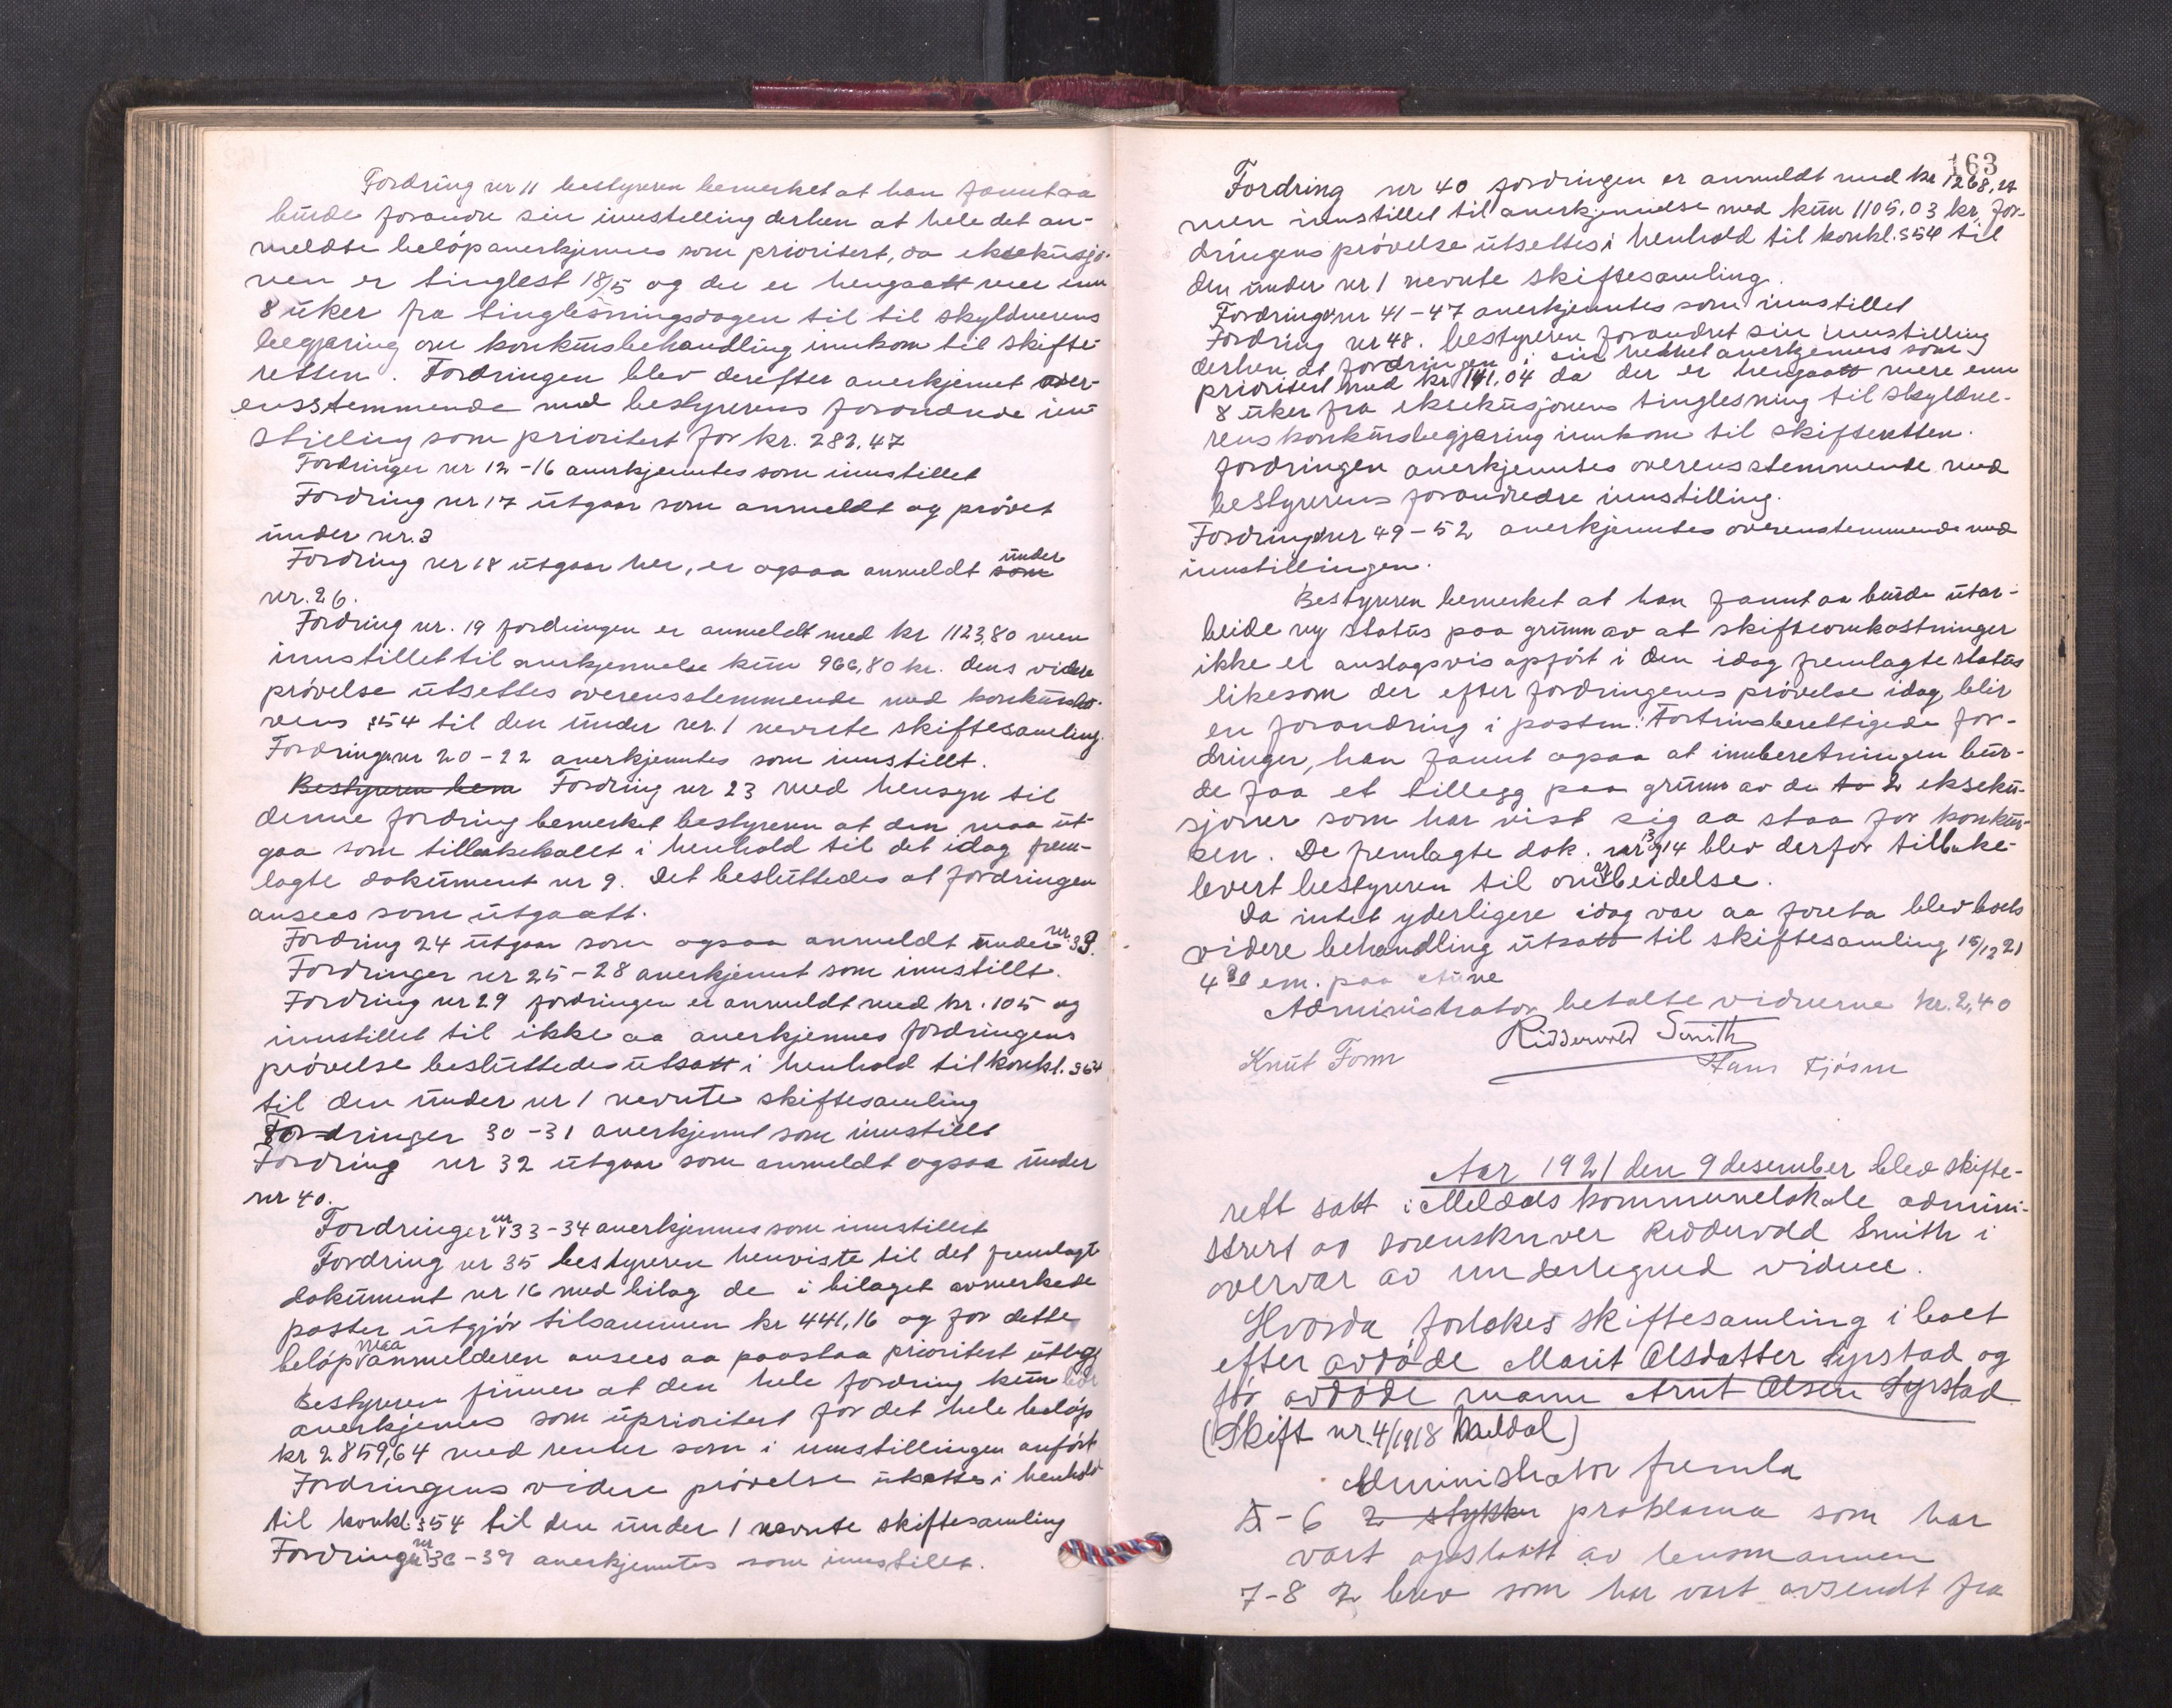 Fordring nr 11 bestyreren bemerket at han fannt aa
burde forandre sin innstelling derhen at hele det an-
meldte beløp anerkjennes som prioritert, da eksekusjo-
nen er tinglest 18/5 og der er hengaatt mer enn
8 uker fra tinglesningsdagen til til skyldnerens
begjæring om konkursbehandling innkom til skifte-
retten. Fordringen blev derefter anerkjennet over-
ensstemmende med bestyrerens forandrede inn-
stilling som prioritert for kr. 282.47
Fordringer nr 12-16 anerkjenntes som innstillet
Fordring nr 17 utgaar som anmeldt og prøvet
under nr. 3
Fordring nr 18 utgaar her, er ogsaa anmeldt som under
nr. 26.
Fordring nr. 19 fordringen er anmeldt med kr 1123,80 men
innstillet til anerkjennelse kun 966,80 kr. dens videre
prøvelse utsettes overensstemmende med konkurslo-
vens §54 til den under nr. 1 nevnte skiftesamling.
Fordringer nr 20-22 anerkjenntes som innstillt.
Bestyreren bem Fordring nr 23 med hensyn til
denne fordring bemerket bestyreren at den maa ut-
gaa som tillbakekallt i henhold til det idag frem-
lagte dokument nr 9. Det besluttedes at fordringen
ansees som utgaatt.
Fordring 24 utgaar som ogsaa anmeldt under nr. 39.
Fordringer nr 25-28 anerkjennt som innstillt.
Fordring nr 29 fordringen er anmeldt med kr. 105 og
innstillet til ikke aa anerkjennes fordringens
prøvelse besluttedes utsatt i henhold til konkl. §54
til den under nr 1 nevnte skiftesamling
Fordringer 30-31 anerkjennt som innstillt
Fordring nr 32 utgaar som anmeldt ogsaa under
nr 40.
Fordringer nr 33-34 anerkjennes som innstillet
Fordring nr 35 bestyreren henviste til det fremlagte
dokument nr 16 med bilag de i bilaget avmerkede
poster utgjør tilsammen kr 441,16 og for dette
beløp maa anmelderen ansees aa paastaa prioritert utlegg
Bestyreren finner at den hele fordring kun bør
anerkjennes som uprioritert for det hele beløp
kr 2859,64 med renter som i innstillingen anført
Fordringens videre prøvelse utsettes i henhold
til konkl. §54 til den under 1 nevnte skiftesamling
Fordringer nr 36-39 anerkjenntes som innstillet.
163
Fordring nr 40 fordringen er anmeldt med kr 1268,
men innstillet til anerkjennelse med kun 1105.03 kr, for-
dringens prøvelse utsettes i henhold til konkl. §54 til
den under nr 1 nevnte skiftesamling.
Fordringer nr 41-47 anerkjenntes som innstillet
Fordring nr 48. bestyreren forandret sin innstilling
derhen at fordringen i sin helhet anerkjennes som
prioritert med kr 141,04 da der er hengaatt mere enn
8 uker fra eksekusjonens tinglesning til skyldne-
rens konkursbegjæring innkom til skifteretten.
Fordringen anerkjenntes overensstemmende med
bestyrerens forandredre innstilling.
Fordringer nr 49-52 anerkjenntes overenstemmende med
innstillingen.
Bestyreren bemerket at han fannt aa burde utar-
beide ny status paa grunn av at skifteomkostninger
ikke er anslagsvis opført i den idag fremlagte status
likesom der efter fordringenes prøvelse idag blir
en forandring i posten: Fortrinsberettigede for-
dringer, han fannt ogsaa at innberetningen bur-
de faa et tillegg paa grunn av de to 2 ekseku-
sjoner som har vist sig aa staa for konkur-
sen. De fremlagte dok. nr 13 og 14 blev derfor tilbake-
levert bestyreren til omarbeidelse.
Da intet yderligere idag var aa foreta blev boets
videre behandling utsatt til skiftesamling 15/12 21
4 30 em. paa Aune
Administrator betalte vidnerne kr. 2,40
Ridderwold Smith
Knut Forn Hans Fjøsne
Aar 1921 den 9 desember blev skifte-
rett satt i Meldals kommunelokale admini-
strert av sorenskriver Riddervold Smith i
overvær av undertegned vidner.
Hvorda foretokes skiftesamling i boet
efter avdøde Marit Olsdatter Syrstad og
før avdøde mann Arnt Olsen Syrstad
(Skift nr. 4/1918 Meldal)
Administrator fremla
5-6 2 stykker proklama som har
vært opslaatt av lensmannen
7-8 2 brev som har vært avsendt fra